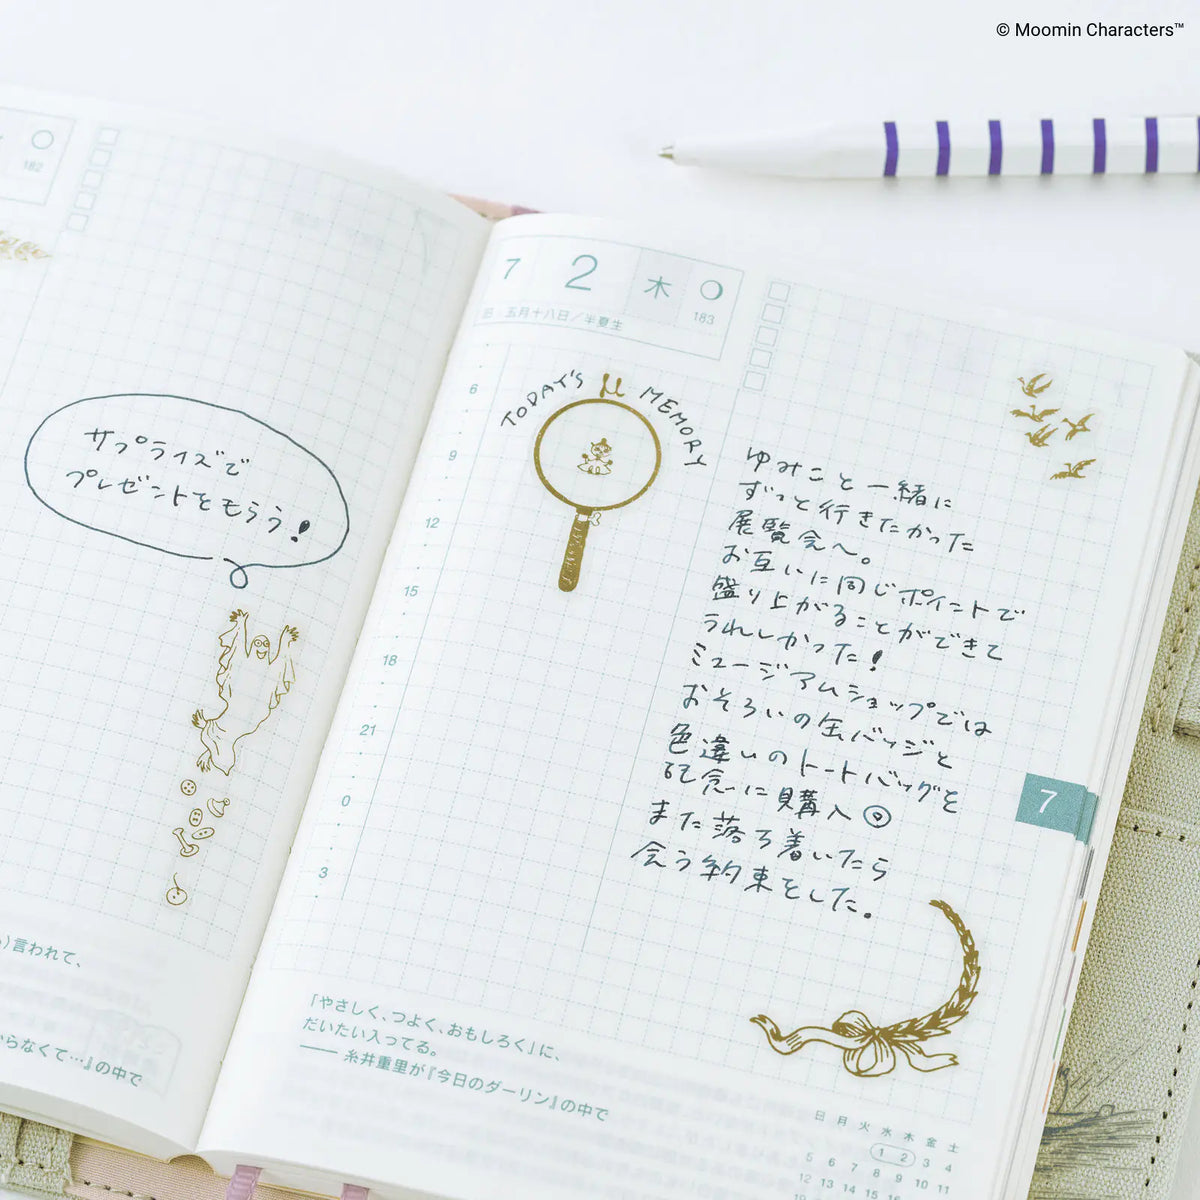 © Moomin Characters™
182
サプライズで
プレゼントをもらう!
)言われて、
らなくて…』の中で
7 2 木
183
五月十八日/半夏生
TODAY'S μ MEMORY
6
9
12
15
18
21
0
3
ゆみこと一緒に
ずっと行きたかった
展覧会へ。
お互いに同じポイントで
盛り上がることができて
うれしかった!
ミュージアムショップでは
おそろいの缶バッジと
色違いのトートバッグを
記念に購入
また落ち着いたら
会う約束をした。
7
「やさしく、つよく、おもしろく」に、
だいたい入ってる。
── 糸井重里が『今日のダーリン』の中で
日 月 火 水 木 金 土
1 2 3 4
5 6 7 8 9 10 11
12 13 14 15 16